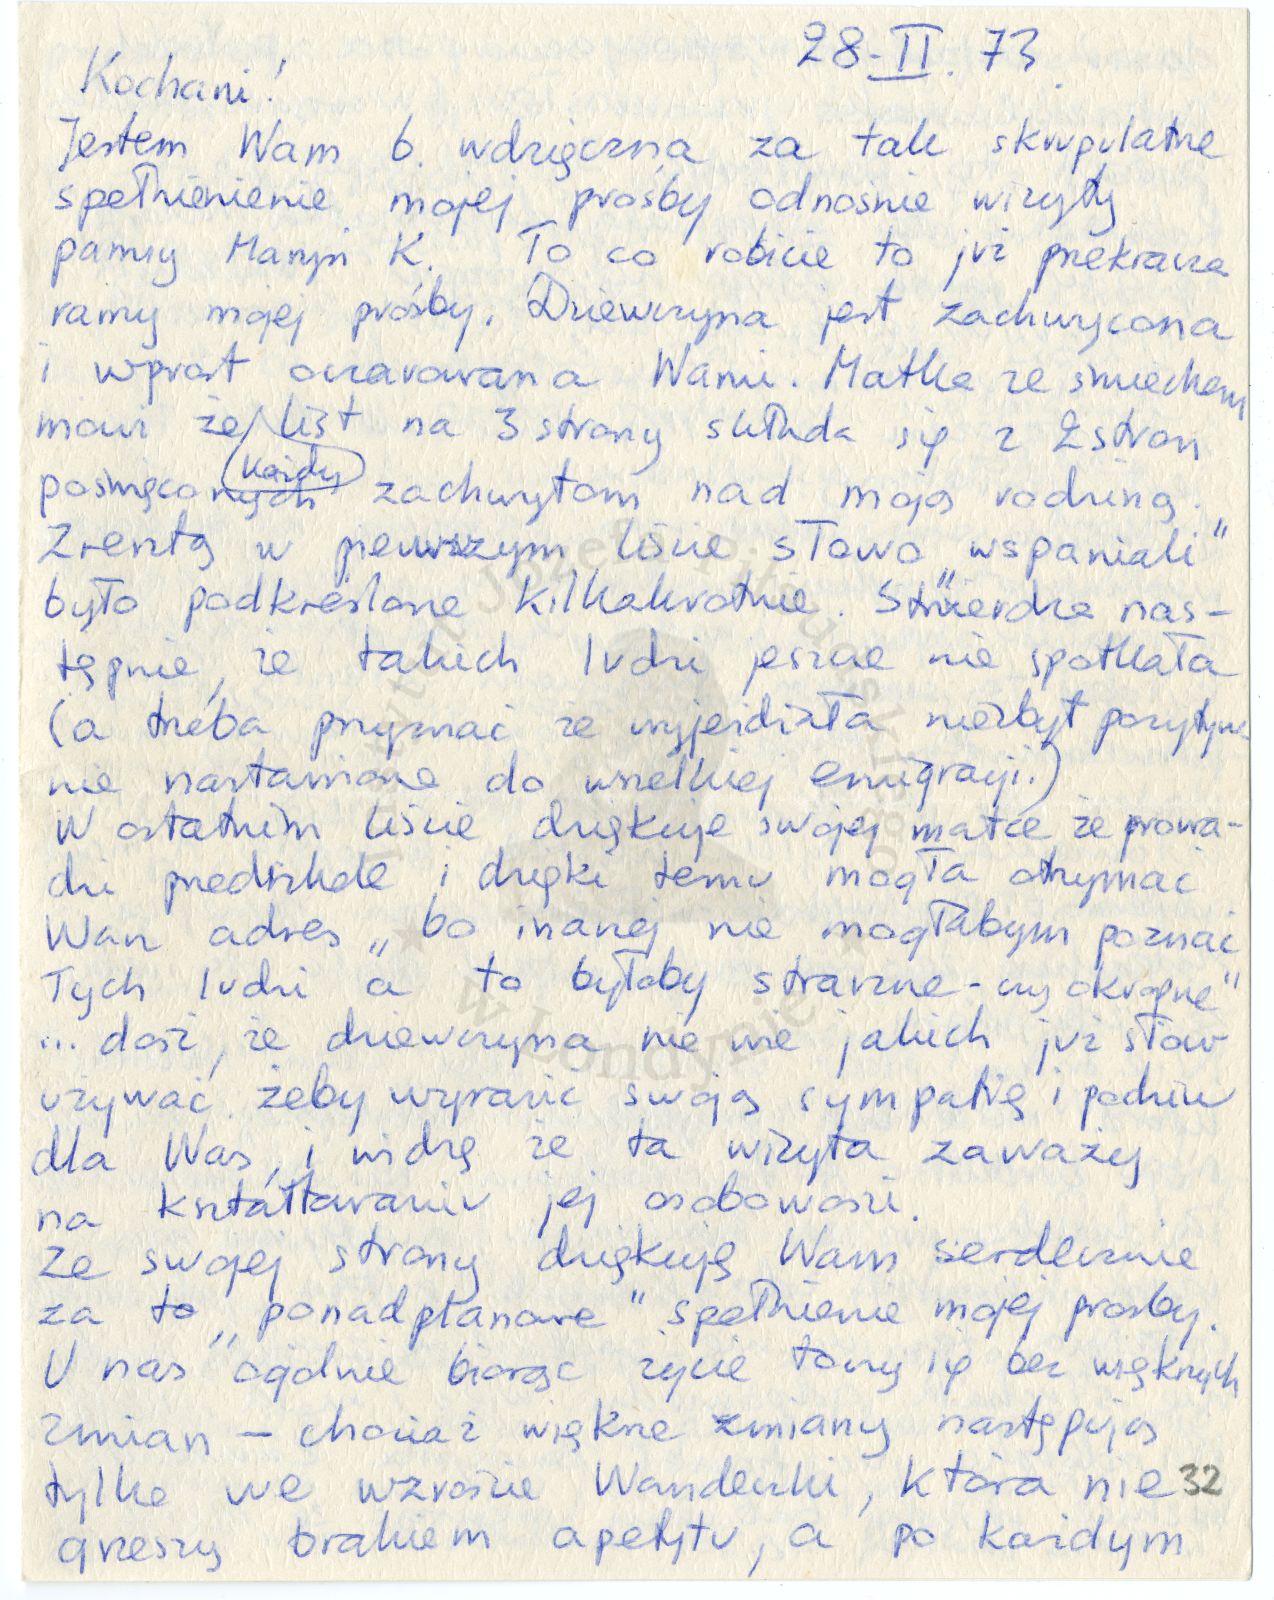 28-II.73.
Kochani!
Jestem Wam b. wdzięczna za tak skrupulatne
spełnienienie mojej prośby odnośnie wizyty
panny Maryni K. To co robicie to już przekracza
ramy mojej prośby. Dziewczyna jest zachwycona
i wprost oczarowana Wami. Matka ze śmiechem
mówi że każdy list na 3 strony składa się z 2 stron
poświęconych zachwytom nad moją rodziną.
Zresztą w pierwszym liście słowo "wspaniali"
było podkreślone kilkakrotnie. Stwierdza nas-
tępnie, że takich ludzi jeszcze nie spotkała
(a trzeba przyznać że wyjeżdżała niezbyt pozytyw-
nie nastawiona do wszelkiej emigracji.)
W ostatnim liście dziękuje swojej matce że prowa-
dzi przedszkole i dzięki temu mogła otrzymać
Wasz adres „bo inaczej nie mogłabym poznać
Tych ludzi a to byłoby straszne - czy okropne"
... dość, że dziewczyna nie wie jakich już słów
używać żeby wyrazić swoją sympatię i podziw
dla Was, i widzę że ta wizyta zaważy
na kształtowaniu jej osobowości.
Ze swojej strony dziękuję Wam serdecznie
za to „ponadplanowe" spełnienie mojej prośby.
U nas ogólnie biorąc życie toczy się bez większych
zmian – chociaż większe zmiany następują
tylko we wzroście Wandeczki, która nie
grzeszy brakiem apetytu, a po każdym
32
Instytut Józefa Piłsudskiego
w Londynie